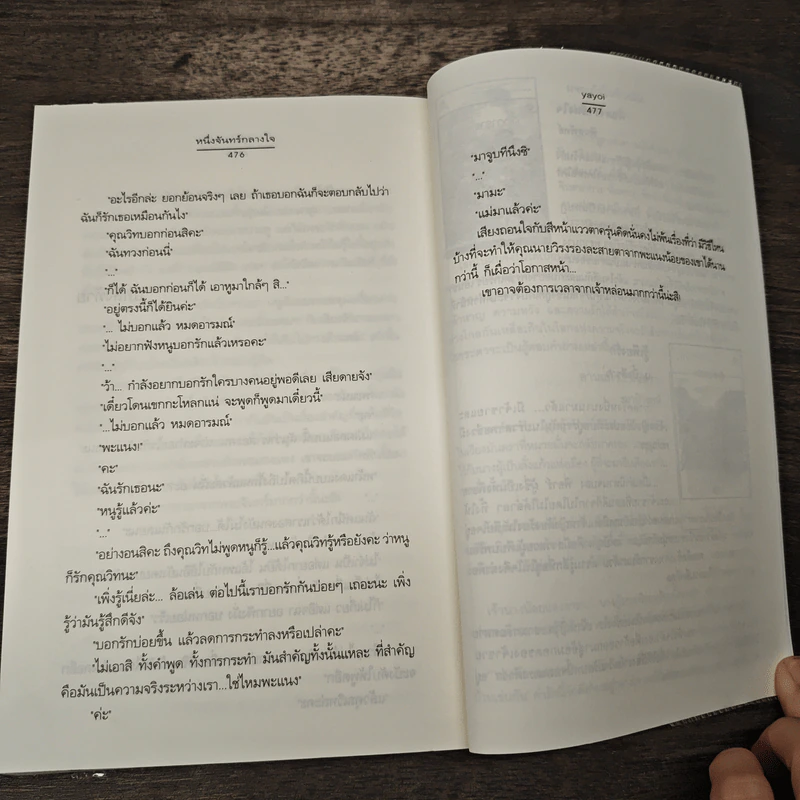 หนึ่งจันทร์กลางใจ
476
"อะไรอีกล่ะ ยอกย้อนจริงๆ เลย ถ้าเธอบอกฉันก็จะตอบกลับไปว่า
ฉันก็รักเธอเหมือนกันไง"
"คุณวิทบอกก่อนสิคะ"
"ฉันทวงก่อนนี่"
"..."
"ก็ได้ ฉันบอกก่อนก็ได้ เอาหูมาใกล้ๆ สิ..."
"อยู่ตรงนี้ก็ได้ยินค่ะ"
"... ไม่บอกแล้ว หมดอารมณ์"
"ไม่อยากฟังหนูบอกรักแล้วเหรอคะ"
"..."
"ว้า... กำลังอยากบอกรักใครบางคนอยู่พอดีเลย เสียดายจัง"
"เดี๋ยวโดนเขกกะโหลกแน่ จะพูดก็พูดมาเดี๋ยวนี้"
"...ไม่บอกแล้ว หมดอารมณ์"
"พะแนง!"
"คะ"
"ฉันรักเธอนะ"
"หนูรู้แล้วค่ะ"
"..."
"อย่างอนสิคะ ถึงคุณวิทไม่พูดหนูก็รู้...แล้วคุณวิทรู้หรือยังคะ ว่าหนู
ก็รักคุณวิทนะ"
"เพิ่งรู้เนี่ยล่ะ... ล้อเล่น ต่อไปนี้เราบอกรักกันบ่อยๆ เถอะนะ เพิ่ง
รู้ว่ามันรู้สึกดีจัง"
"บอกรักบ่อยขึ้น แล้วลดการกระทำลงหรือเปล่าคะ"
"ไม่เอาสิ ทั้งคำพูด ทั้งการกระทำ มันสำคัญทั้งนั้นแหละ ที่สำคัญ
คือมันเป็นความจริงระหว่างเรา...ใช่ไหมพะแนง"
"ค่ะ"
yayoi
477
"มาจูบทีนึงซิ"
"..."
"มามะ"
"แม่มาแล้วค่ะ"
เสียงถอนใจกับสีหน้าแววตาครุ่นคิดนั่นคงไม่พ้นเรื่องที่ว่า มีวิธีไหน
บ้างที่จะทำให้คุณนายวิรงรองละสายตาจากพะแนงน้อยของเขาได้นาน
กว่านี้ ก็เผื่อว่าโอกาสหน้า...
เขาอาจต้องการเวลาจากเจ้าหล่อนมากกว่านี้น่ะสิ!